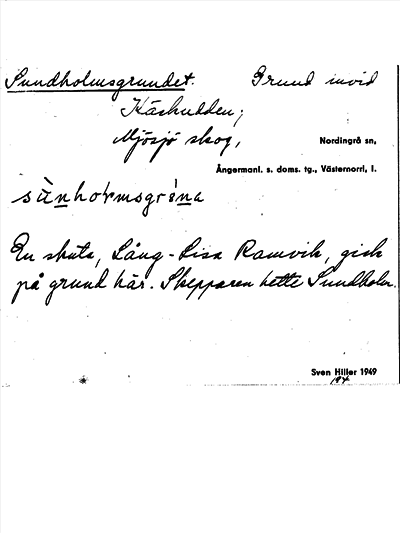 Sundholmsgrundet. Grund invid
Käskudden,
Mjösjö skog, Nordingrå sn,
Ångermanl. s. doms. tg., Västernorrl. l.
En skuta, Lång-Lisa Ramvik, gick
på grund här. Skepparen hette Sundholm.
Sven Hiller 1949